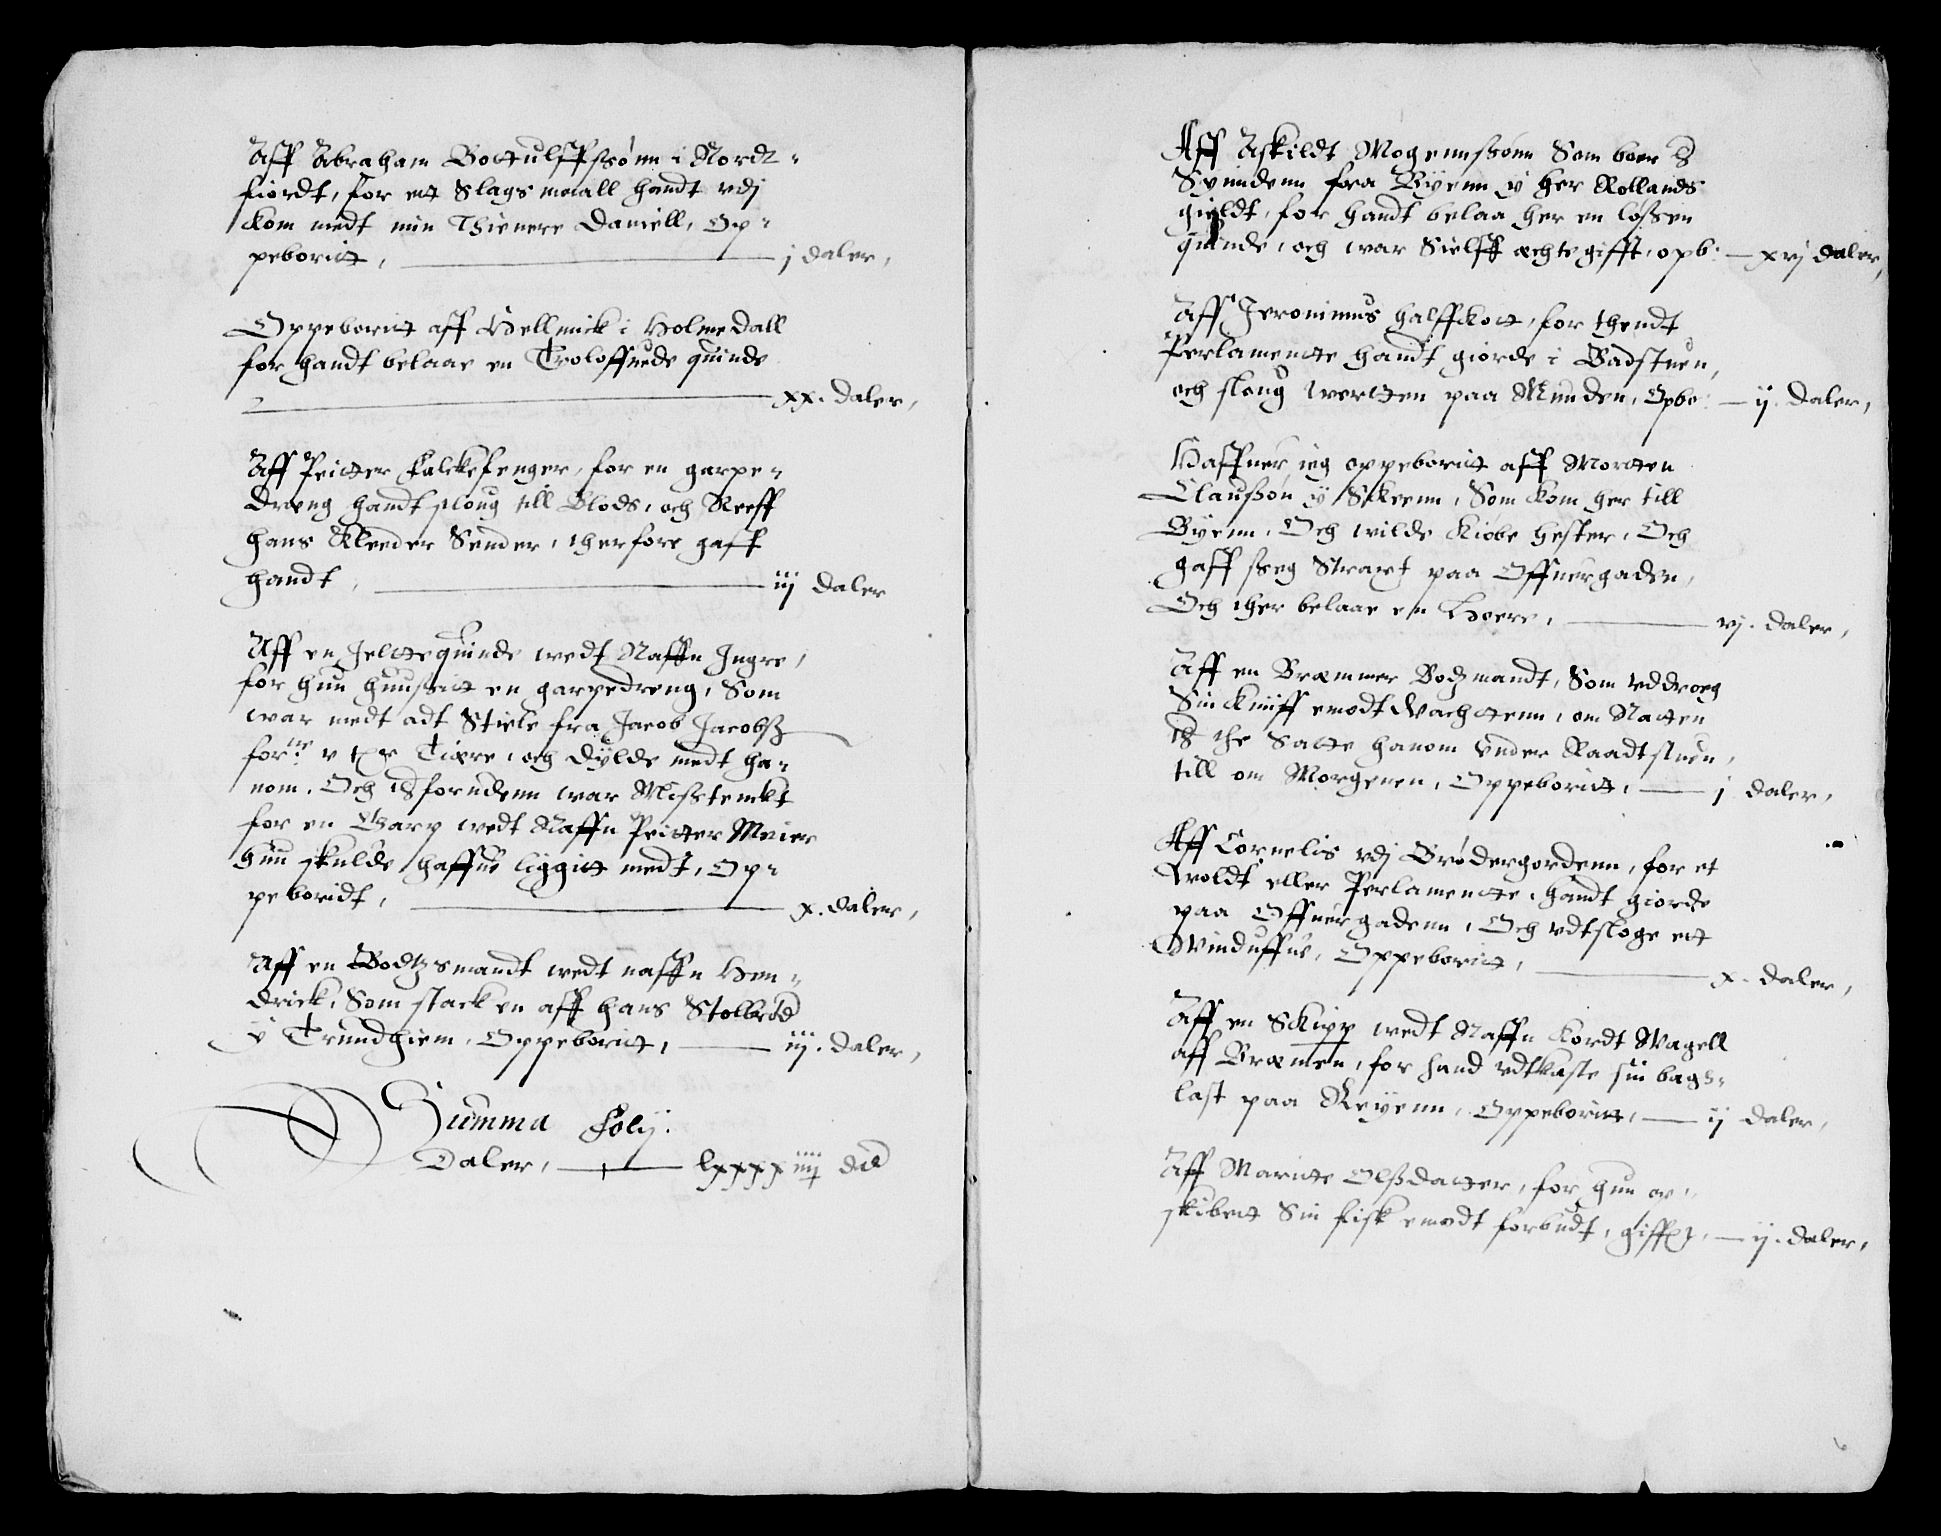 Aff Abraham Bottulffssønn i Nordt-
fiordt, for ett Slags maall handt vdj
kom medt min Thienere Daniell, Op-
peboritt, j daler,
Oppeboritt aff Hellmick i Holmedall
for handt belaae en Troloffuede quinde
xx. daler,
Aff Peitter Falckefenger, for en garpe-
dreng handt sloug till Blods, och Reeff
hans Kleeder Sønder, therfore gaff
handt, iiij daler
Aff en Jeltequinde wedt Naffn Ingre,
for hun huussitt en garpedreng, Som
war medt adt Stiele fra Jacob Jacobss
v Tiære, och dyldt medt ha-
nom. Och forudenn war Misstenckt
for en Garp wedt Naffn Peitter Meier
hun skulde haffue liggitt medt, Op-
peboridt, x. daler,
Aff en Bodtzsmandt wedt naffn Hen-
drick, Som stack en aff hans Stolbrød
y Trundhiem, Oppeboritt, iiij. daler,
Summa Folij.
Daler, lxxxxiiij dlr
Aff Askildt Mogennssønn Som boer
Synndenn fra Byenn y her Rollands
gieldt, for handt belaa her en løssen
quinde, och war Sielff echte gifft, opb: xvj daler,
Aff Jeronimus Halffkott, for thendt
Perlamentte handt giorde i Badstuen,
och sloug wertten paa Munden, Opbe: ij. daler,
Haffuer ieg oppeboritt aff Mortten
Claussøn y Skeenn, Som kom her till
Byenn, Och wilde kiøbe hester, Och
gaff sseg Straxt paa Offuergaden,
Och ther belaae en Hoere, vj. daler,
Aff en Bræmmer Bodzmandt, Som vddroeg
Sin kniiff emodt Wachttenn, om Natten
the Satte hanom Vnder Raadtstuen,
till om Morgenen, Oppeboritt, j daler,
Aff Cornelis vdj Brødergordenn, for et
Woldt eller Perlamentte, handt giorde
paa Offuergadenn, Och vdtsloge ett
Winduffue, Oppeboritt, x. daler,
Aff en Skipp wedt Naffn Kordt Wagell
aff Bræmen, for hand vdtkaste sin bags-
last paa Reyenn, Oppeboritt, ij daler,
Aff Maritte Olssdatter, for hun
skibett Sin fisk emodt forbudt, ij. daler,